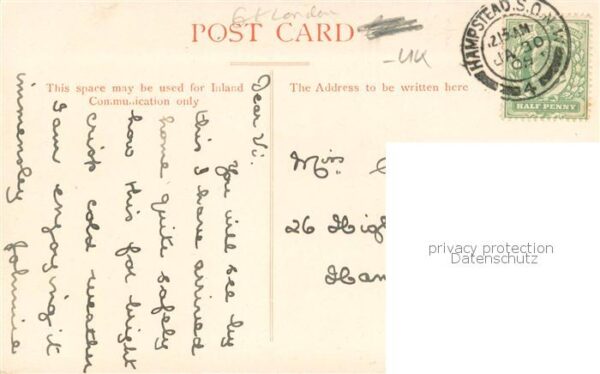 Gt London
POST CARD
-UK
HAMPSTEAD. S.O. N.W.
12.15 AM
JA 30
09
4
HALF PENNY
This space may be used for Inland
Communication only
The Address to be written here
Dear Vi.
You will see by
this I have arrived
home quite safely
how this for bright
crisp cold weather
I am enjoying it
immensley Johnnie
Miss
26 Hig
Ham
privacy protection
Datenschutz